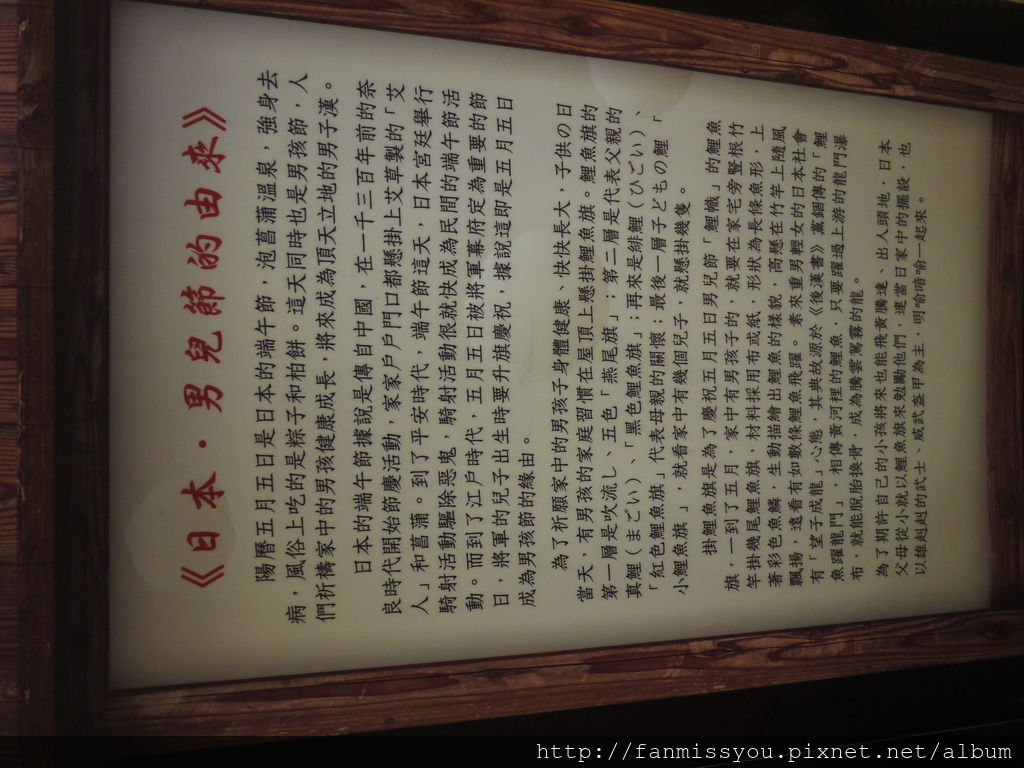 《日本·男兒節的由來》
陽曆五月五日是日本的端午節，泡菖蒲溫泉，強身去
病，風俗上吃的是粽子和柏餅。這天同時也是男孩節，人
們祈禱家中的男孩健康成長，將來成為頂天立地的男子漢。
日本的端午節據說是傳自中國，在一千三百年前的奈
良時代開始節慶活動，家家戶戶門口都懸掛上艾草製的「艾
人」和菖蒲。到了平安時代，端午節這天，日本宮廷舉行
騎射活動驅除惡鬼，騎射活動很就快成為民間的端午節活
動。而到了江戶時代，五月五日被將軍幕府定為重要的節
日，將軍的兒子出生時要升旗慶祝，據說這即是五月五日
成為男孩節的緣由。
為了祈願家中的男孩子身體健康、快快長大，子供の日
當天，有男孩的家庭習慣在屋頂上懸掛鯉魚旗。鯉魚旗的
第一層是吹流し、五色「燕尾旗」；第二層是代表父親的
真鯉（まごい）、「黑色鯉魚旗」；再來是緋鯉（ひごい）、
「紅色鯉魚旗」代表母親的關懷；最後一層子どもの鯉「
小鯉魚旗」，就看家中有幾個兒子，就懸掛幾隻。
掛鯉魚旗是為了慶祝五月五日男兒節「鯉幟」的鯉魚
旗，一到了五月，家中有男孩子的，就要在家宅旁豎根竹
竿掛幾尾鯉魚旗，材料採用布或紙，形狀為長條魚形，上
著彩色魚鱗，生動描繪出鯉魚的樣貌，高懸在竹竿上隨風
飄揚，遠看有如數條鯉魚飛躍。素來重男輕女的日本社會
有「望子成龍」心態，其典故源於《後漢書》黨錮傳的「鯉
魚躍龍門」，相傳黃河裡的鯉魚，只要躍過上游的龍門瀑
布，就能脫胎換骨，成為騰雲駕霧的龍。
為了期許自己的小孩將來也能飛黃騰達、出人頭地，日本
父母從小就以鯉魚旗來勉勵他們，連當日家中的擺設，也
以雄赳赳的武士、威武盔甲為主，明喻暗喻一起來。
http://fanmissyou.pixnet.net/album